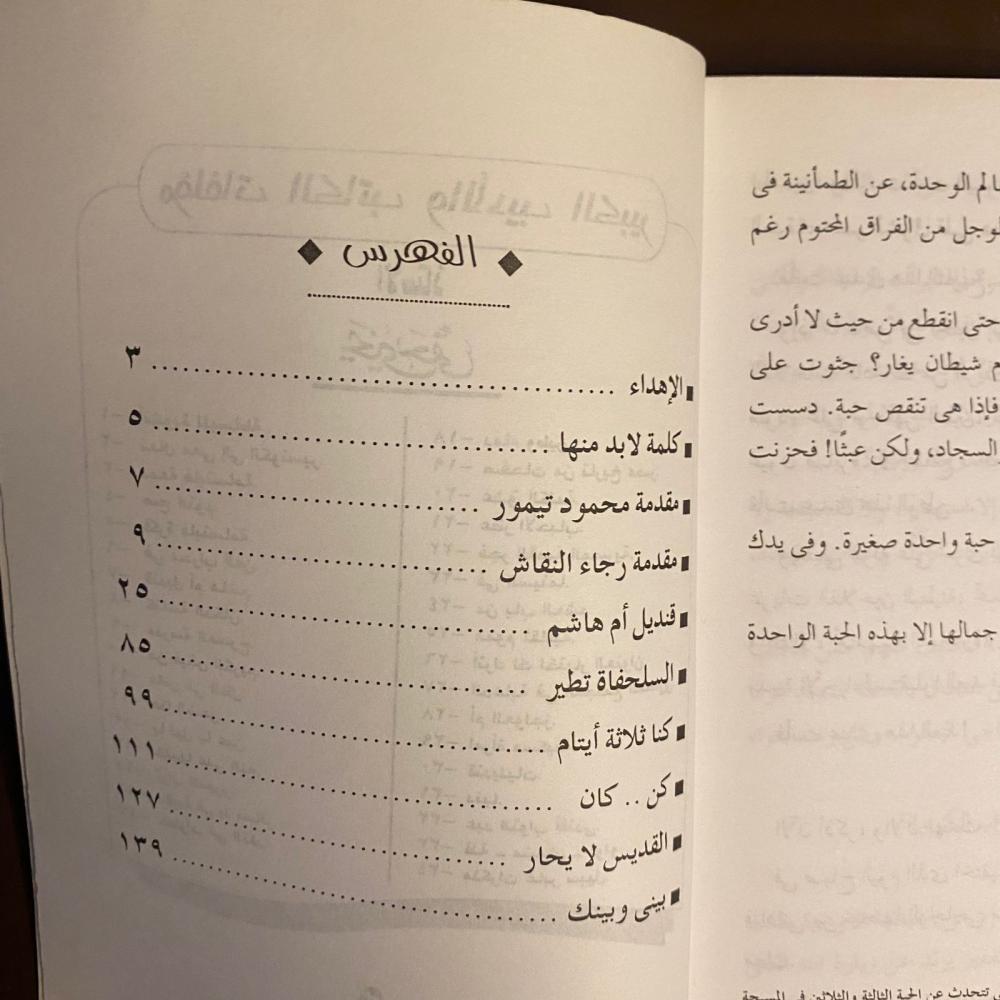 الفهرس
الإهداء ........ ٣
كلمة لابد منها ........ ٥
مقدمة محمود تيمور ........ ٧
مقدمة رجاء النقاش ........ ٩
قنديل أم هاشم ........ ٢٥
السلحفاة تطير ........ ٨٥
كنا ثلاثة أيتام ........ ٩٩
كن .. كان ........ ١١١
القديس لا يحار ........ ١٢٧
بينى وبينك ........ ١٣٩
الوحدة، عن الطمأنينة فى
من الفراق المحتوم رغم
حتى انقطع من حيث لا أدرى
شيطان يغار؟ جثوت على
فإذا هى تنقص حبة. دسست
السجاد، ولكن عبثًا! فحزنت
حبة واحدة صغيرة. وفى يدك
جمالها إلا بهذه الحبة الواحدة
تتحدث عن الحبة الثالثة والثلاثين فى المسبحة